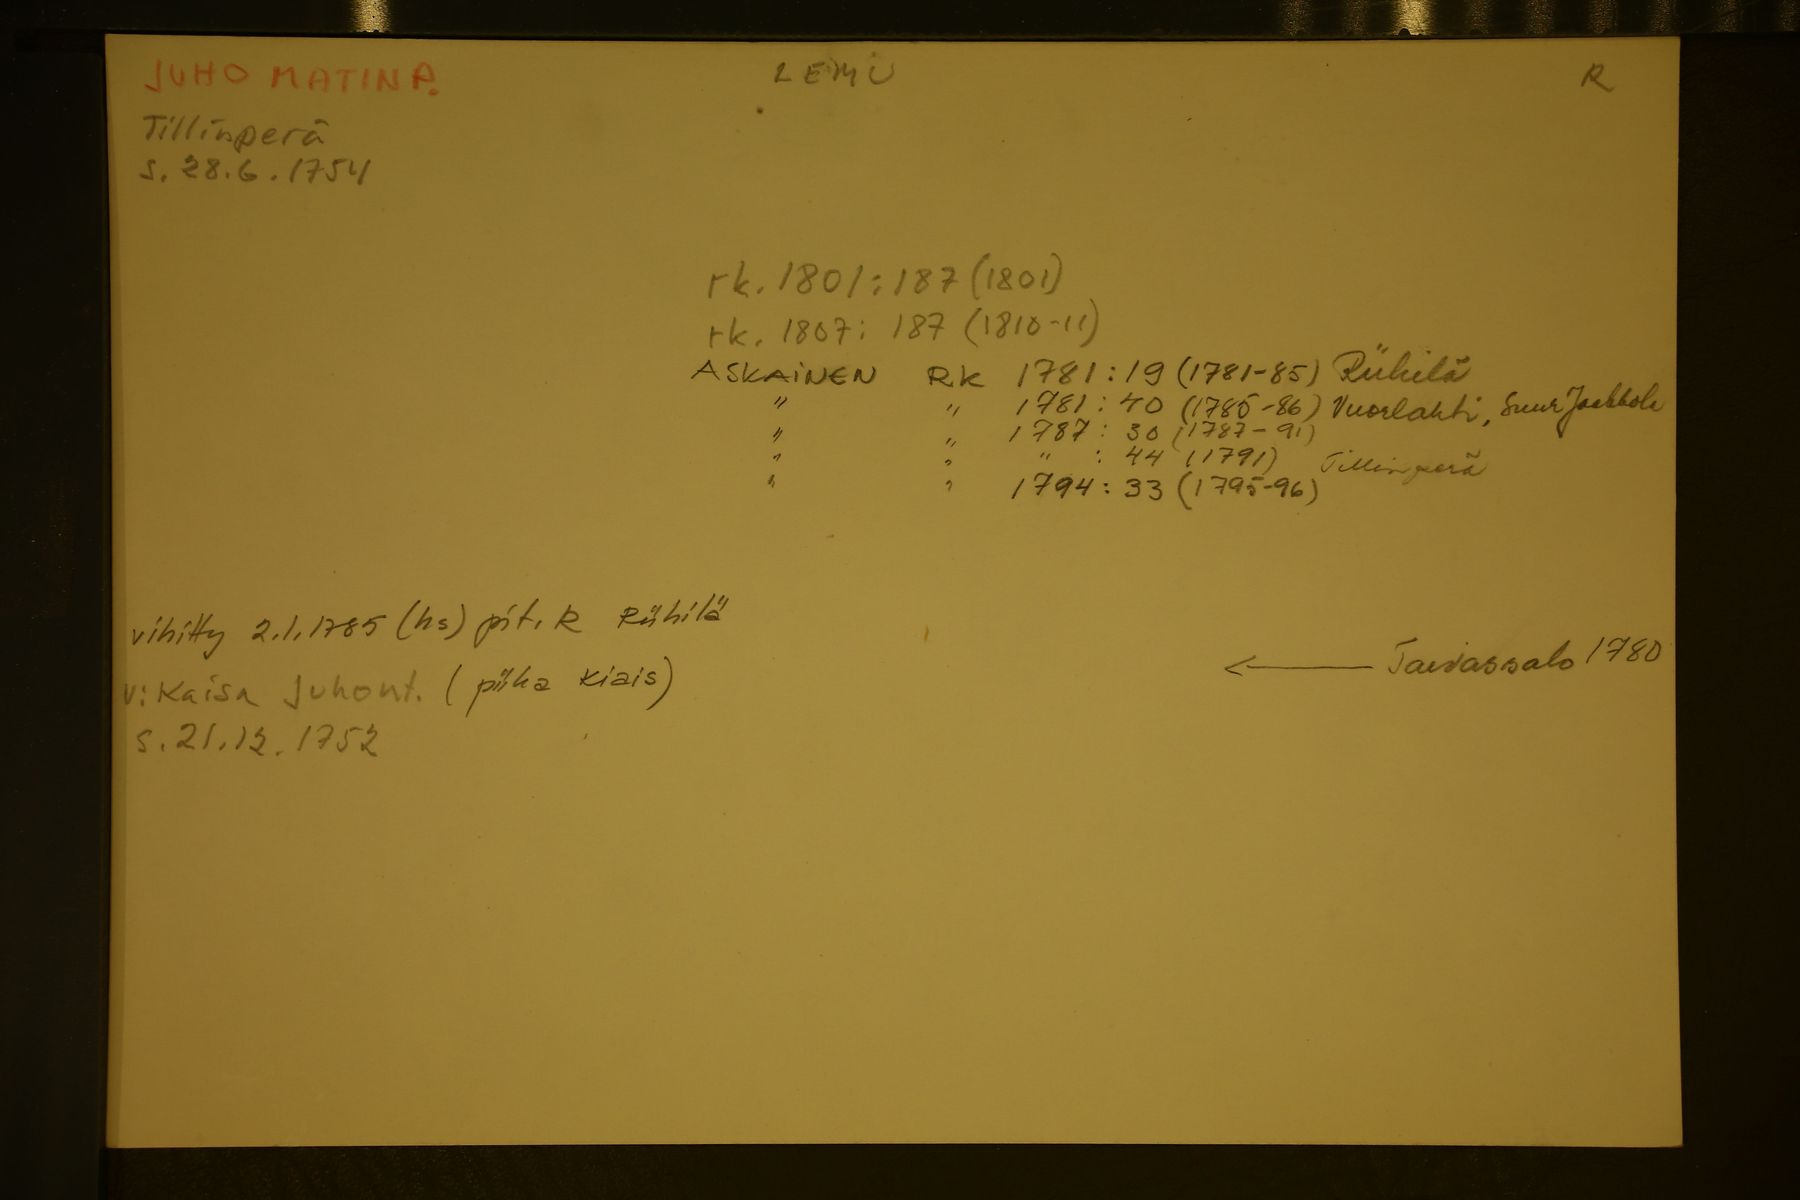 JUHO MATINP. LEMU R
Tillinperä
s. 28.6.1754
rk. 1801:187 (1801)
rk. 1807: 187 (1810-11)
ASKAINEN RK 1781:19 (1781-85) Riihilä
" " 1781:40 (1785-86) Vuorlahti, Suur Jaakkola
" " 1787:30 (1787-91)
" " " :44 (1791) Tillinperä
" " 1794:33 (1795-96)
vihitty 2.1.1785 (hs) pit. R Riihilä
← Taivassalo 1780
v: Kaisa Juhont. (piika Kiais)
s. 21.12.1752